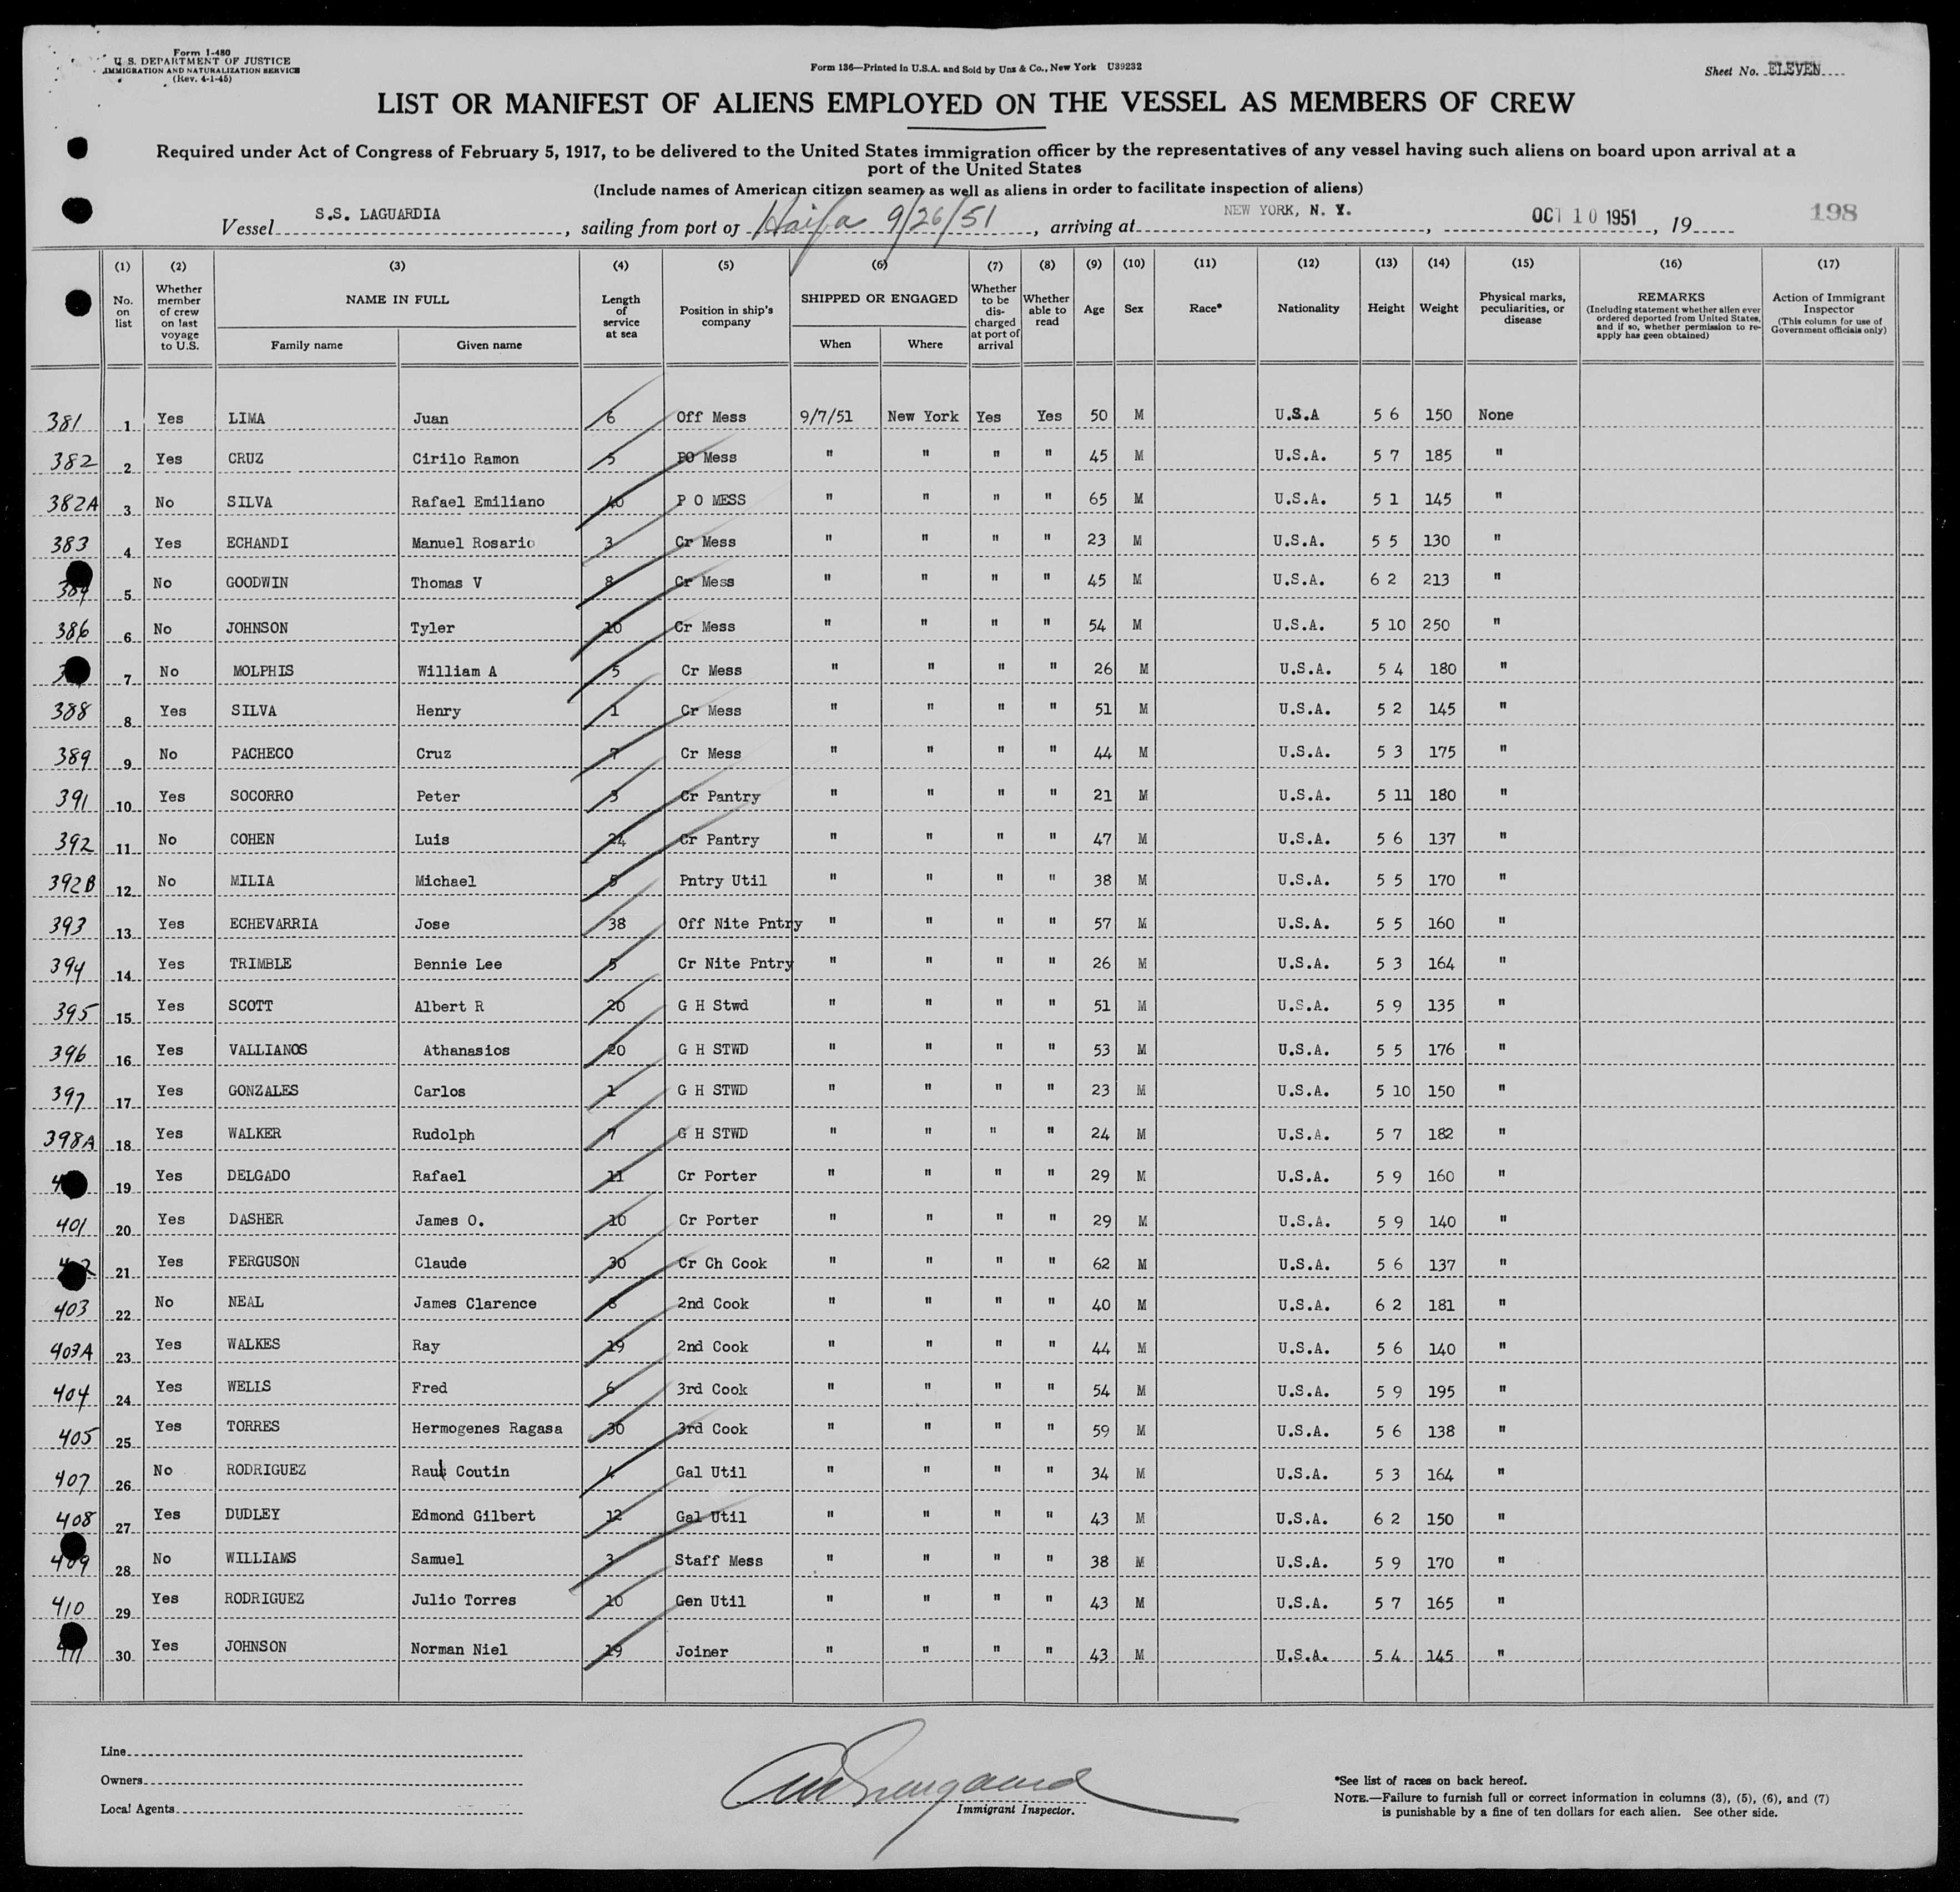 Form I-480
U. S. DEPARTMENT OF JUSTICE
IMMIGRATION AND NATURALIZATION SERVICE
(Rev. 4-1-45)
Form 136—Printed in U.S.A. and Sold by Unz & Co., New York U39232
Sheet No. ELEVEN
LIST OR MANIFEST OF ALIENS EMPLOYED ON THE VESSEL AS MEMBERS OF CREW
Required under Act of Congress of February 5, 1917, to be delivered to the United States immigration officer by the representatives of any vessel having such aliens on board upon arrival at a
port of the United States
(Include names of American citizen seamen as well as aliens in order to facilitate inspection of aliens)
Vessel S.S. LAGUARDIA, sailing from port of Haifa 9/26/51, arriving at NEW YORK, N. Y., OCT 10 1951, 19 198
(1) No. on list (2) Whether member of crew on last voyage to U.S. (3) NAME IN FULL Family name Given name (4) Length of service at sea (5) Position in ship's company (6) SHIPPED OR ENGAGED When Where (7) Whether to be discharged at port of arrival (8) Whether able to read (9) Age (10) Sex (11) Race* (12) Nationality (13) Height (14) Weight (15) Physical marks, peculiarities, or disease (16) REMARKS (Including statement whether alien ever ordered deported from United States, and if so, whether permission to re-apply has geen obtained) (17) Action of Immigrant Inspector (This column for use of Government officials only)
381 1 Yes LIMA Juan 6 Off Mess 9/7/51 New York Yes Yes 50 M U.S.A 5 6 150 None
382 2 Yes CRUZ Cirilo Ramon 5 PO Mess " " " " 45 M U.S.A. 5 7 185 "
382A 3 No SILVA Rafael Emiliano 40 P O MESS " " " " 65 M U.S.A. 5 1 145 "
383 4 Yes ECHANDI Manuel Rosario 3 Cr Mess " " " " 23 M U.S.A. 5 5 130 "
384 5 No GOODWIN Thomas V 8 Cr Mess " " " " 45 M U.S.A. 6 2 213 "
386 6 No JOHNSON Tyler 10 Cr Mess " " " " 54 M U.S.A. 5 10 250 "
7 No MOLPHIS William A 5 Cr Mess " " " " 26 M U.S.A. 5 4 180 "
388 8 Yes SILVA Henry 1 Cr Mess " " " " 51 M U.S.A. 5 2 145 "
389 9 No PACHECO Cruz 7 Cr Mess " " " " 44 M U.S.A. 5 3 175 "
391 10 Yes SOCORRO Peter 3 Cr Pantry " " " " 21 M U.S.A. 5 11 180 "
392 11 No COHEN Luis 24 Cr Pantry " " " " 47 M U.S.A. 5 6 137 "
392B 12 No MILIA Michael 5 Pntry Util " " " " 38 M U.S.A. 5 5 170 "
393 13 Yes ECHEVARRIA Jose 38 Off Nite Pntry " " " " 57 M U.S.A. 5 5 160 "
394 14 Yes TRIMBLE Bennie Lee 5 Cr Nite Pntry " " " " 26 M U.S.A. 5 3 164 "
395 15 Yes SCOTT Albert R 20 G H Stwd " " " " 51 M U.S.A. 5 9 135 "
396 16 Yes VALLIANOS Athanasios 20 G H STWD " " " " 53 M U.S.A. 5 5 176 "
397 17 Yes GONZALES Carlos 1 G H STWD " " " " 23 M U.S.A. 5 10 150 "
398A 18 Yes WALKER Rudolph 7 G H STWD " " " " 24 M U.S.A. 5 7 182 "
19 Yes DELGADO Rafael 11 Cr Porter " " " " 29 M U.S.A. 5 9 160 "
401 20 Yes DASHER James O. 10 Cr Porter " " " " 29 M U.S.A. 5 9 140 "
402 21 Yes FERGUSON Claude 30 Cr Ch Cook " " " " 62 M U.S.A. 5 6 137 "
403 22 No NEAL James Clarence 8 2nd Cook " " " " 40 M U.S.A. 6 2 181 "
403A 23 Yes WALKES Ray 19 2nd Cook " " " " 44 M U.S.A. 5 6 140 "
404 24 Yes WELLS Fred 6 3rd Cook " " " " 54 M U.S.A. 5 9 195 "
405 25 Yes TORRES Hermogenes Ragasa 30 3rd Cook " " " " 59 M U.S.A. 5 6 138 "
407 26 No RODRIGUEZ Raul Coutin 4 Gal Util " " " " 34 M U.S.A. 5 3 164 "
408 27 Yes DUDLEY Edmond Gilbert 12 Gal Util " " " " 43 M U.S.A. 6 2 150 "
409 28 No WILLIAMS Samuel 3 Staff Mess " " " " 38 M U.S.A. 5 9 170 "
410 29 Yes RODRIGUEZ Julio Torres 10 Gen Util " " " " 43 M U.S.A. 5 7 165 "
411 30 Yes JOHNSON Norman Niel 19 Joiner " " " " 43 M U.S.A. 5 4 145 "
Line
Owners
Local Agents
Immigrant Inspector.
*See list of races on back hereof.
NOTE.—Failure to furnish full or correct information in columns (3), (5), (6), and (7)
is punishable by a fine of ten dollars for each alien. See other side.